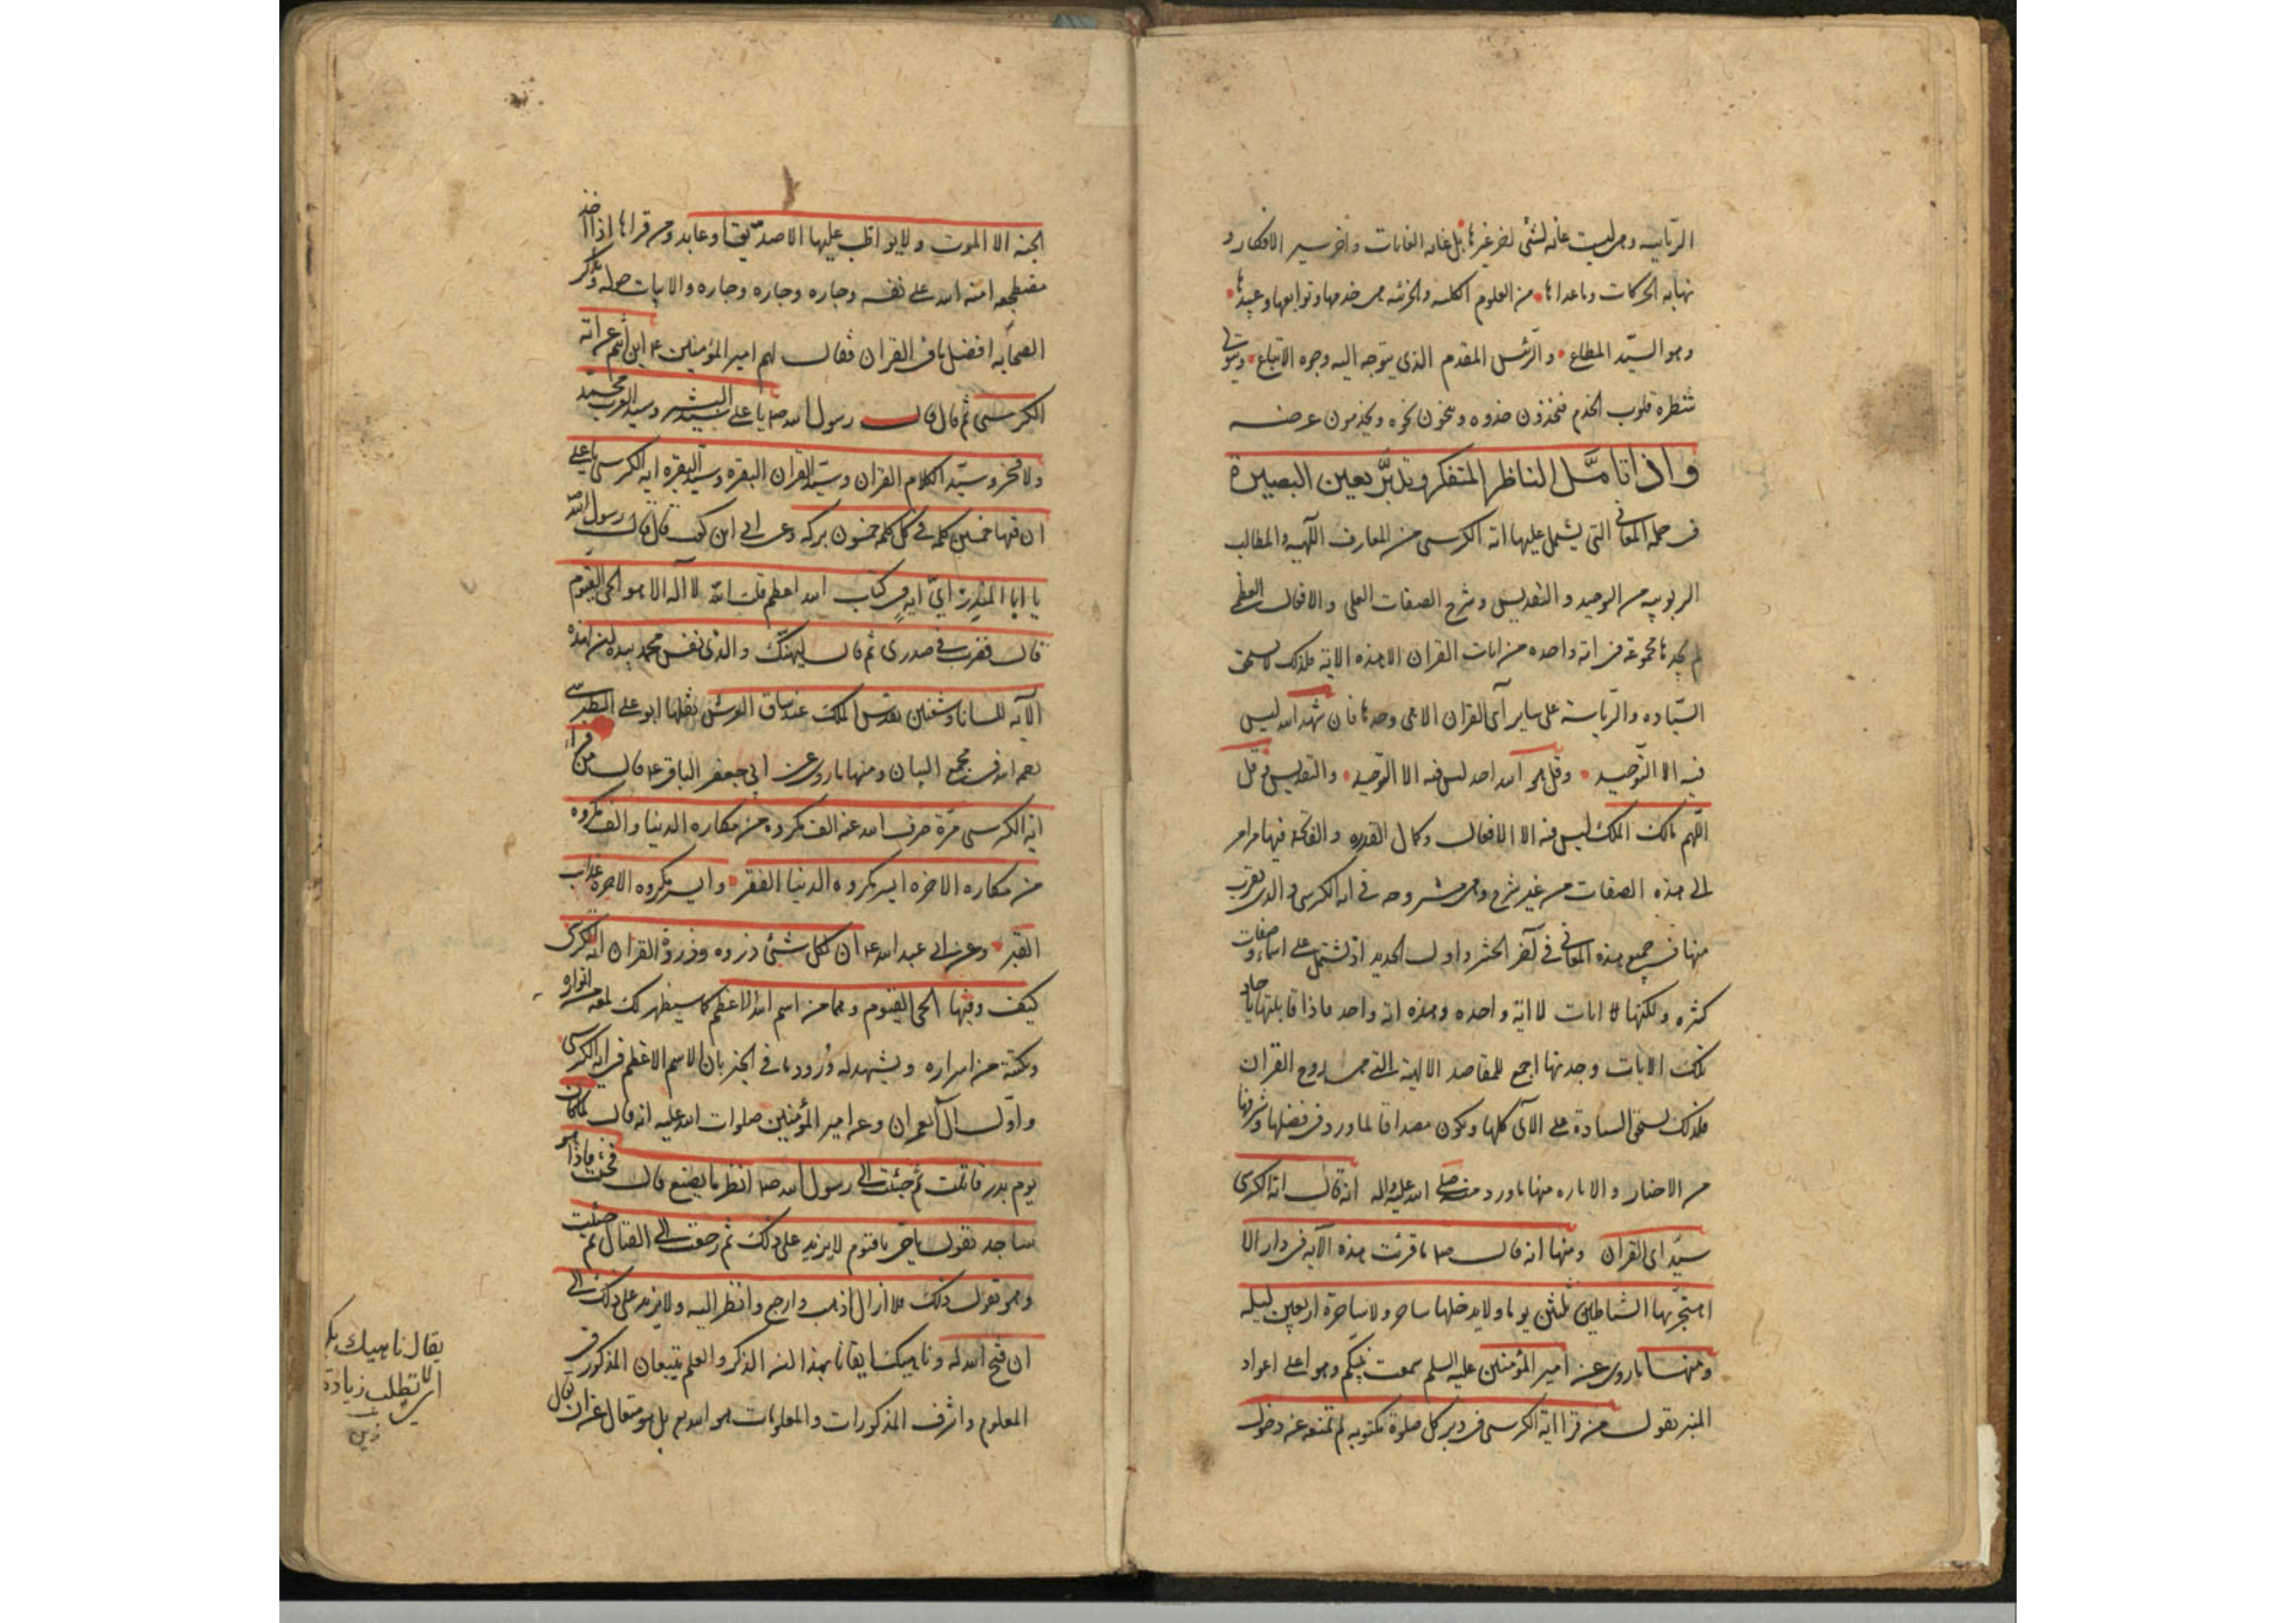 الربانيه وهى ليست غايه لشئ اخر غيرها بل غايه الغايات واخر سير الافكار و
نهايه الحركات وما عداها من العلوم الكليه والجزئيه هى خدمها وتوابعها وعبيدها
وهو السيد المطاع والرئيس المقدم الذى يتوجه اليه وجوه الاتباع ويتولى
شطره قلوب الخدم فيحذون حذوه وينحون نحوه ويخدمون عرضه
واذا تأمل الناظر المتفكر وتدبر بعين البصيرة
فى جملة المعانى التى يشتمل عليها اية الكرسى من المعارف الالهيه والمطالب
الربوبيه من التوحيد و التقديس وشرح الصفات العلى والافعال العظمى
لم يجدها مجموعة فى اية واحده من ايات القران الا هذه الاية فلذلك لا يستحق
السياده والرياسة على ساير آى القران الا هى وحدها فان شهد الله ليس
فيه الا التوحيد وقل هو الله احد ليس فيه الا التوحيد والتقديس وقل
اللهم مالك الملك ليس فيه الا الافعال وكمال القدره والفاتحة فيها مرامز
الى هذه الصفات من غير شرح وهى مشروحه فى اية الكرسى والذى يقرب
منها فى جميع هذه المعانى فى آخر الحشر واول الحديد اذ تشتمل على اسماء وصفات
كثيره ولكنها ايات لا اية واحده وهذه اية واحد فاذا قابلتها باحاد
تلك الايات وجدتها اجمع للمقاصد الالهية التى هى روح القران
فلذلك تستحق السيادة على الآى كلها ويكون مصداقا لما ورد فى فضلها وشرفها
من الاخبار والاثاره منها ما ورد منه صلى الله عليه واله انه قال اية الكرسى
سيد اى القران ومنها انه قال ص ما قرئت هذه الآيه فى دار الا
اهتجرتها الشياطين ثلثين يوما ولا يدخلها ساحر ولا ساحرة اربعين ليله
ومنها ما روى عن امير المؤمنين عليه السلم سمعت نبيكم وهو على اعواد
المنبر يقول من قرا اية الكرسى فى دبر كل صلوة مكتوبه لم تمنعه عن دخول
الجنه الا الموت ولا يواظب عليها الا صديق او عابد ومن قراها اذا اخذ
مضجعه امنه الله على نفسه وجاره وجاره وجاره والابيات حوله وتذاكر
الصحابه افضل ما فى القران فقال لهم امير المؤمنين ع اين انتم عن اية
الكرسى ثم قال قال رسول الله ص يا على سيد البشر وسيد العرب محمد
ولا فخر وسيد الكلام القران وسيد القران البقره وسيد البقره اية الكرسى يا على
ان فيها خمسين كلمة فى كل كلمة خمسون بركه وعن ابى ابن كعب قال قال رسول الله
يا ابا المنذر اى اية فى كتاب الله اعظم قلت الله لا اله الا هو الحى القيوم
قال فضرب فى صدرى ثم قال ليهنك والذى نفس محمد بيده ان لهذه
الآيه للسانا وشفتين يقدس الملك عند ساق العرش نقلها ابو على الطبرسى
رحمه الله فى مجمع البيان ومنها ما روى عن ابى جعفر الباقر ع قال من قرا
اية الكرسى مرة صرف الله عنه الف مكروه من مكاره الدنيا والف مكروه
من مكاره الاخره ايسر مكروه الدنيا الفقر وايسر مكروه الاخره عذاب
القبر وعن ابى عبد الله ع ان لكل شئ ذروه وذروة القران اية الكرسى
كيف وفيها الحى القيوم وهما من اسم الله الاعظم كما سيظهر لك لمعه من انواره
ونكتة من اسراره ويشهد له ورودها فى الخبر بان الاسم الاعظم فى اية الكرسى
واول آل عمران وعن امير المؤمنين صلوات الله عليه انه قال لما كان
يوم بدر قاتلت ثم جئت الى رسول الله ص انظر ما يصنع قال فجئت فاذا هو
ساجد يقول يا حى يا قيوم لا يزيد على ذلك ثم رجعت الى القتال ثم جئت
وهو يقول ذلك فلا ازال اذهب وارجع وانظر اليه ولا يزيد على ذلك الى
ان فتح الله له وناهيك ايقانا بهذا ان الذكر والعلم يتبعان المذكور و
المعلوم واشرف المذكورات والمعلومات هو الله بل هو متعال عن ان يقال
يقال ناهيك بكذا
اى لا تطلب زيادة